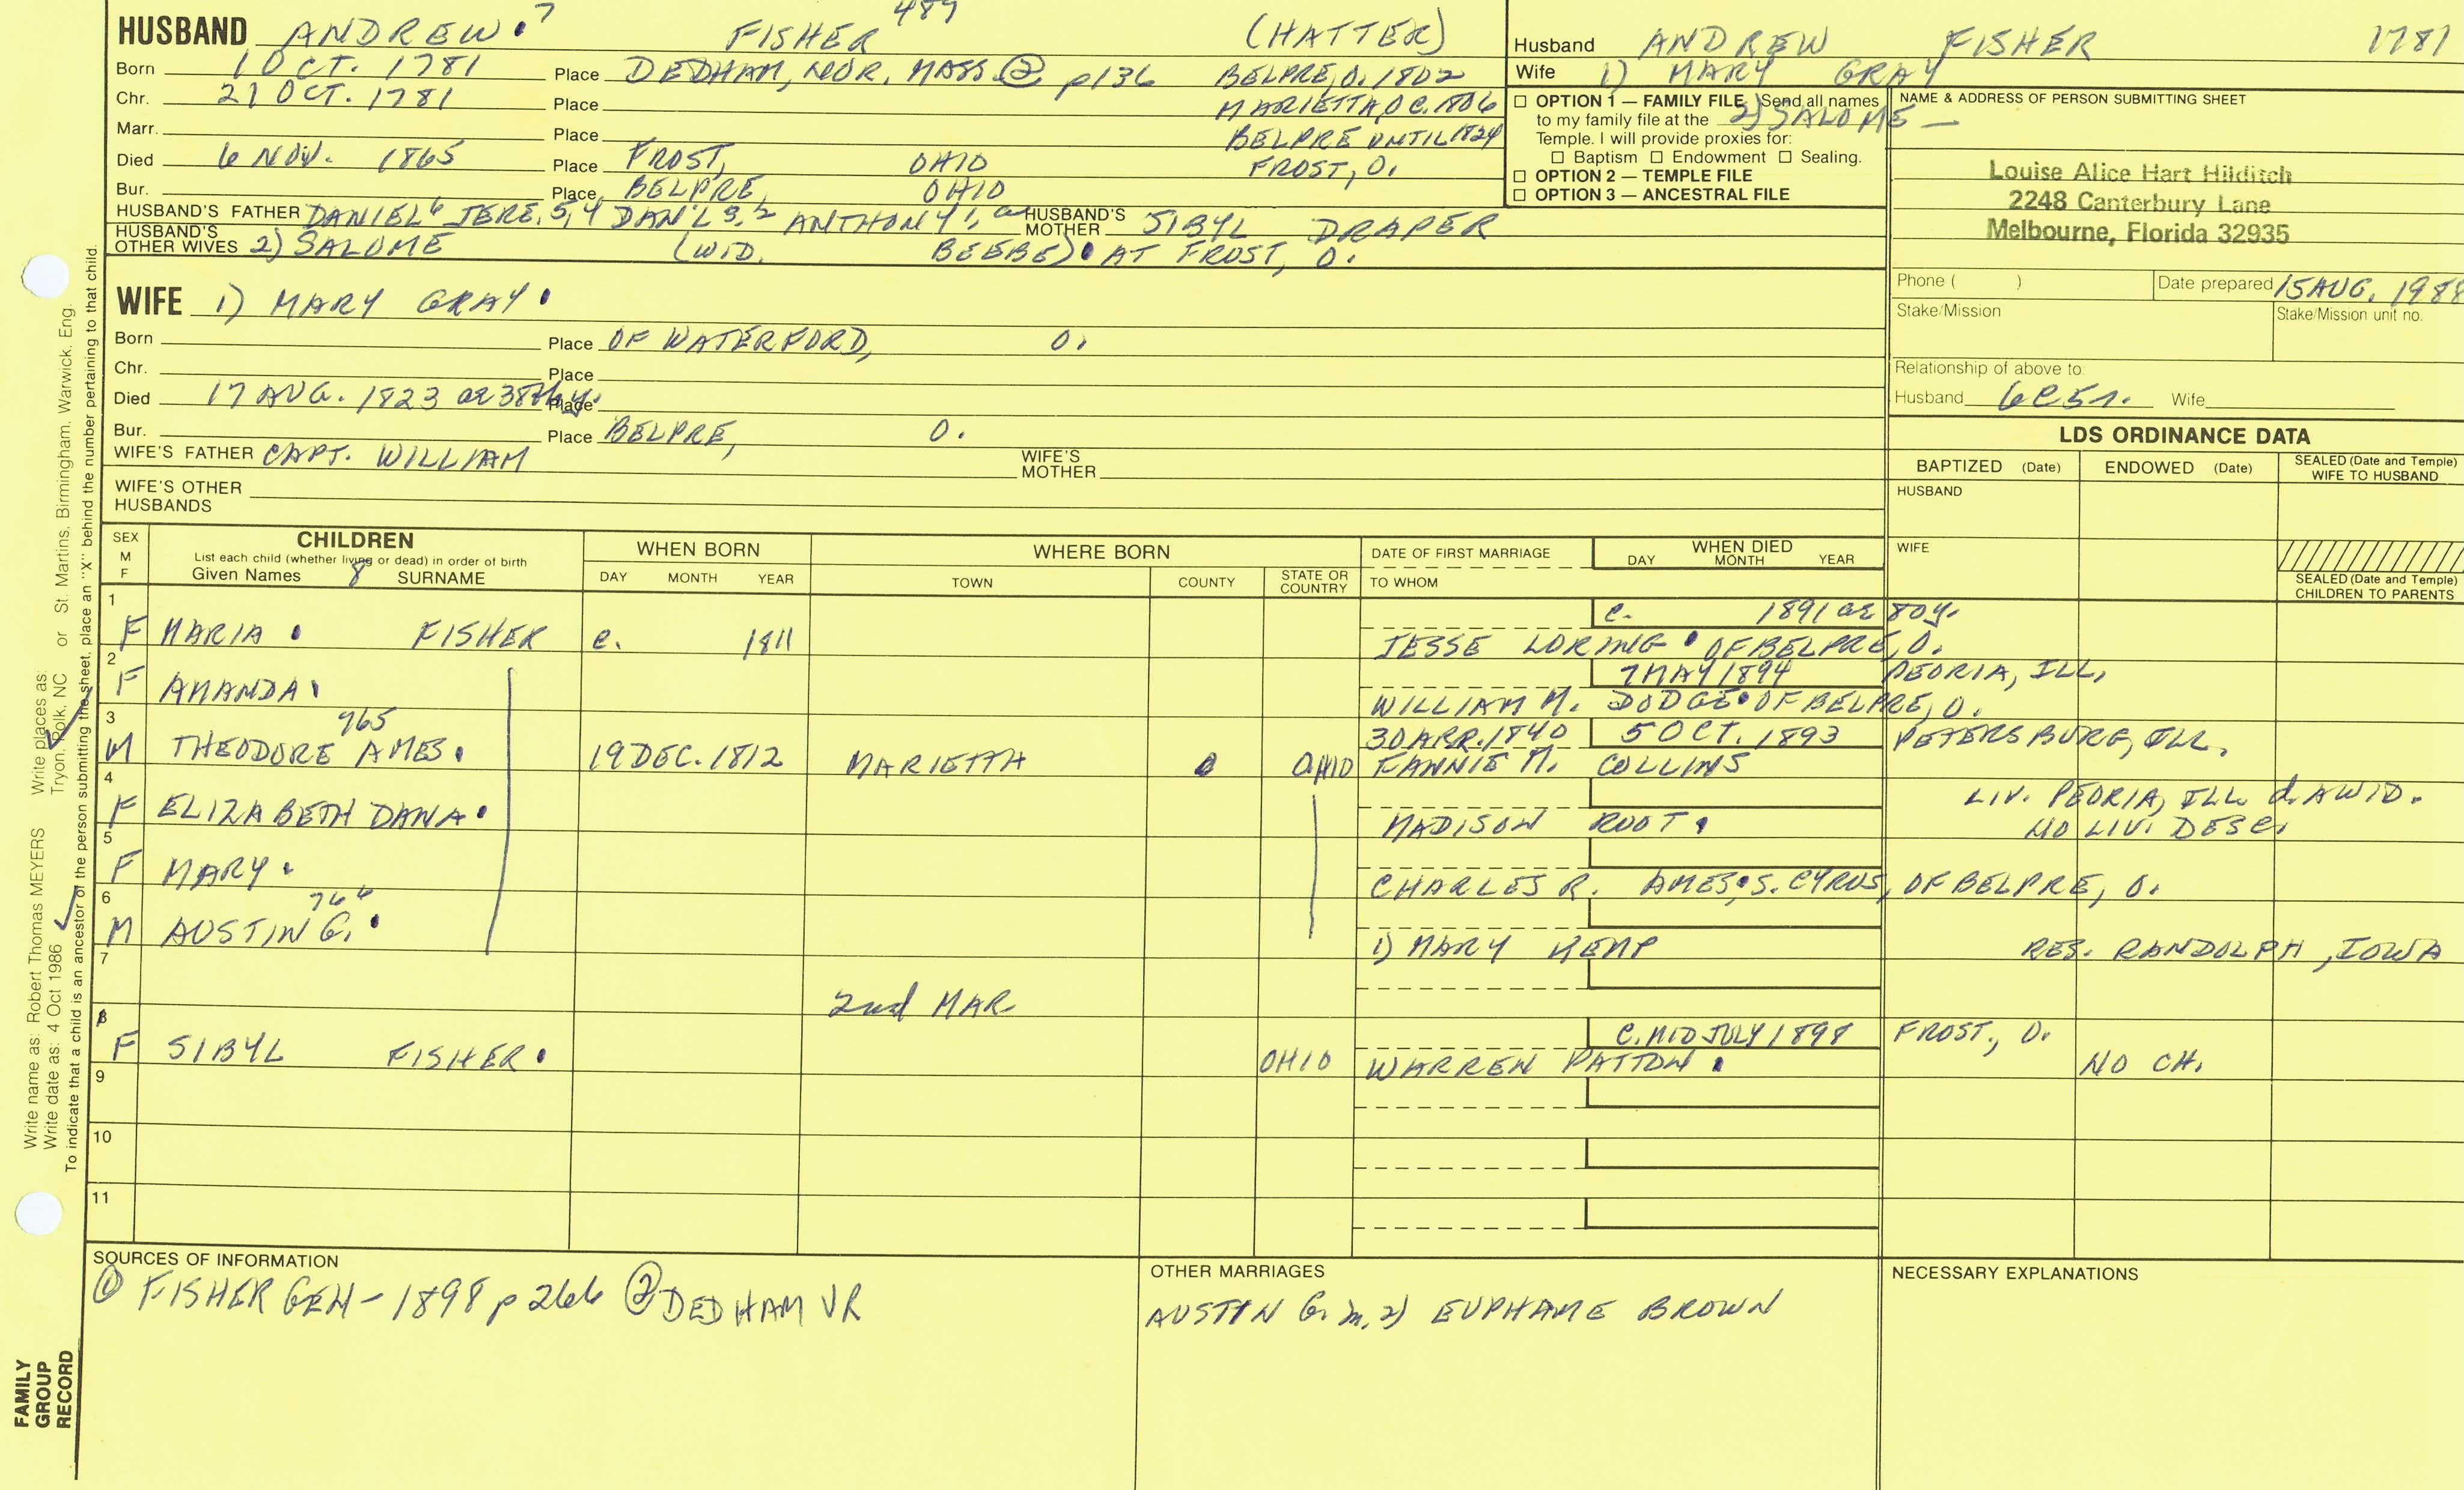 HUSBAND ANDREW. 7 FISHER 489 (HATTER)
Born 1 OCT. 1781 Place DEDHAM, NOR, MASS. ② p136 BELPRE, O. 1802
Chr. 21 OCT. 1781 Place MARIETTA, O C. 1806
Marr. Place BELPRE UNTIL 1824
Died 6 NOV. 1865 Place FROST, OHIO FROST, O.
Bur. Place BELPRE, OHIO
HUSBAND'S FATHER DANIEL 6 JERE. 5,4 DAN'L 3,2 ANTHONY 1, HUSBAND'S MOTHER SIBYL DRAPER
HUSBAND'S OTHER WIVES 2) SALOME (WID. BEEBE). AT FROST, O.
Husband ANDREW FISHER 1781
Wife 1) MARY GRAY
2) SALOME —
☐ OPTION 1 — FAMILY FILE Send all names
to my family file at the
Temple. I will provide proxies for:
☐ Baptism ☐ Endowment ☐ Sealing.
☐ OPTION 2 — TEMPLE FILE
☐ OPTION 3 — ANCESTRAL FILE
NAME & ADDRESS OF PERSON SUBMITTING SHEET
Louise Alice Hart Hilditch
2248 Canterbury Lane
Melbourne, Florida 32935
Phone ( ) Date prepared 15 AUG. 1988
Stake/Mission Stake/Mission unit no.
Relationship of above to:
Husband 6C5r. Wife
WIFE 1) MARY GRAY.
Born Place OF WATERFORD, O.
Chr. Place
Died 17 AUG. 1823 ae 38th y. Place
Bur. Place BELPRE, O.
WIFE'S FATHER CAPT. WILLIAM WIFE'S MOTHER
WIFE'S OTHER HUSBANDS
LDS ORDINANCE DATA
BAPTIZED (Date) ENDOWED (Date) SEALED (Date and Temple) WIFE TO HUSBAND
HUSBAND
WIFE
SEALED (Date and Temple) CHILDREN TO PARENTS
SEX M F CHILDREN List each child (whether living or dead) in order of birth Given Names 8 SURNAME
WHEN BORN DAY MONTH YEAR
WHERE BORN TOWN COUNTY STATE OR COUNTRY
DATE OF FIRST MARRIAGE TO WHOM
WHEN DIED DAY MONTH YEAR
1 c. 1891 ae 80y.
F MARIA. FISHER c. 1811 JESSE LORING. OF BELPRE, O.
2 7 MAY 1894 PEORIA, ILL.
F AMANDA. WILLIAM M. DODGE. OF BELPRE, O.
3 965 30 APR. 1840 5 OCT. 1893 PETERSBURG, ILL.
M THEODORE AMES. 19 DEC. 1812 MARIETTA OHIO FANNIE M. COLLINS
4 LIV. PEORIA, ILL d. A WID.
F ELIZABETH DANA. MADISON ROOT. NO LIV. DESC.
5
F MARY. CHARLES R. AMES, S. CYRUS, OF BELPRE, O.
6 966
M AUSTIN G. 1) MARY KEMP RES. RANDOLPH, IOWA
7
2nd MAR.
8 C. MID JULY 1898 FROST, O.
F SIBYL FISHER. OHIO WARREN PATTON. NO CH.
9
10
11
SOURCES OF INFORMATION
① FISHER GEN - 1898 p 266 ② DEDHAM VR
OTHER MARRIAGES
AUSTIN G. m. 2) EUPHAME BROWN
NECESSARY EXPLANATIONS
Write name as: Robert Thomas MEYERS Write places as:
Write date as: 4 Oct 1986 Tryon, Polk, NC or St. Martins, Birmingham, Warwick, Eng.
To indicate that a child is an ancestor of the person submitting the sheet, place an "X" behind the number pertaining to that child.
FAMILY
GROUP
RECORD